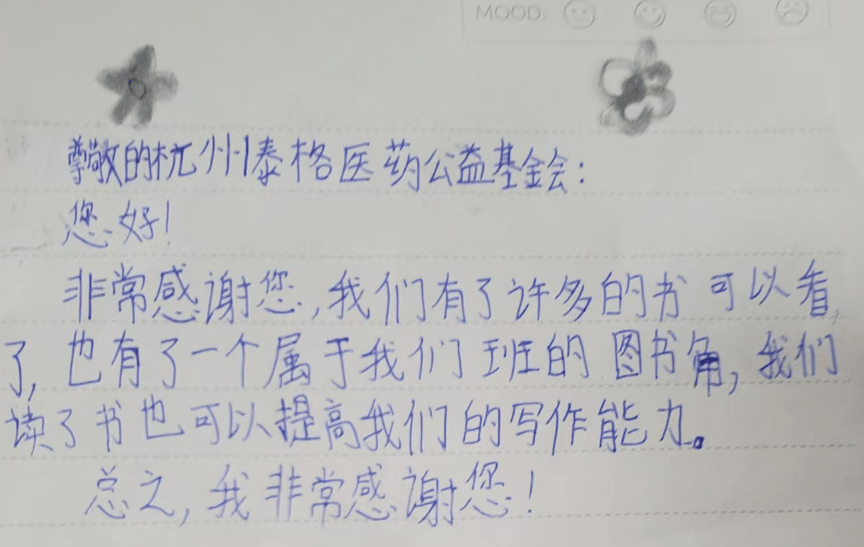 MOOD:
尊敬的杭州泰格医药公益基金会：
您好！
非常感谢您，我们有了许多的书可以看
了，也有了一个属于我们班的图书角，我们
读了书也可以提高我们的写作能力。
总之，我非常感谢您！